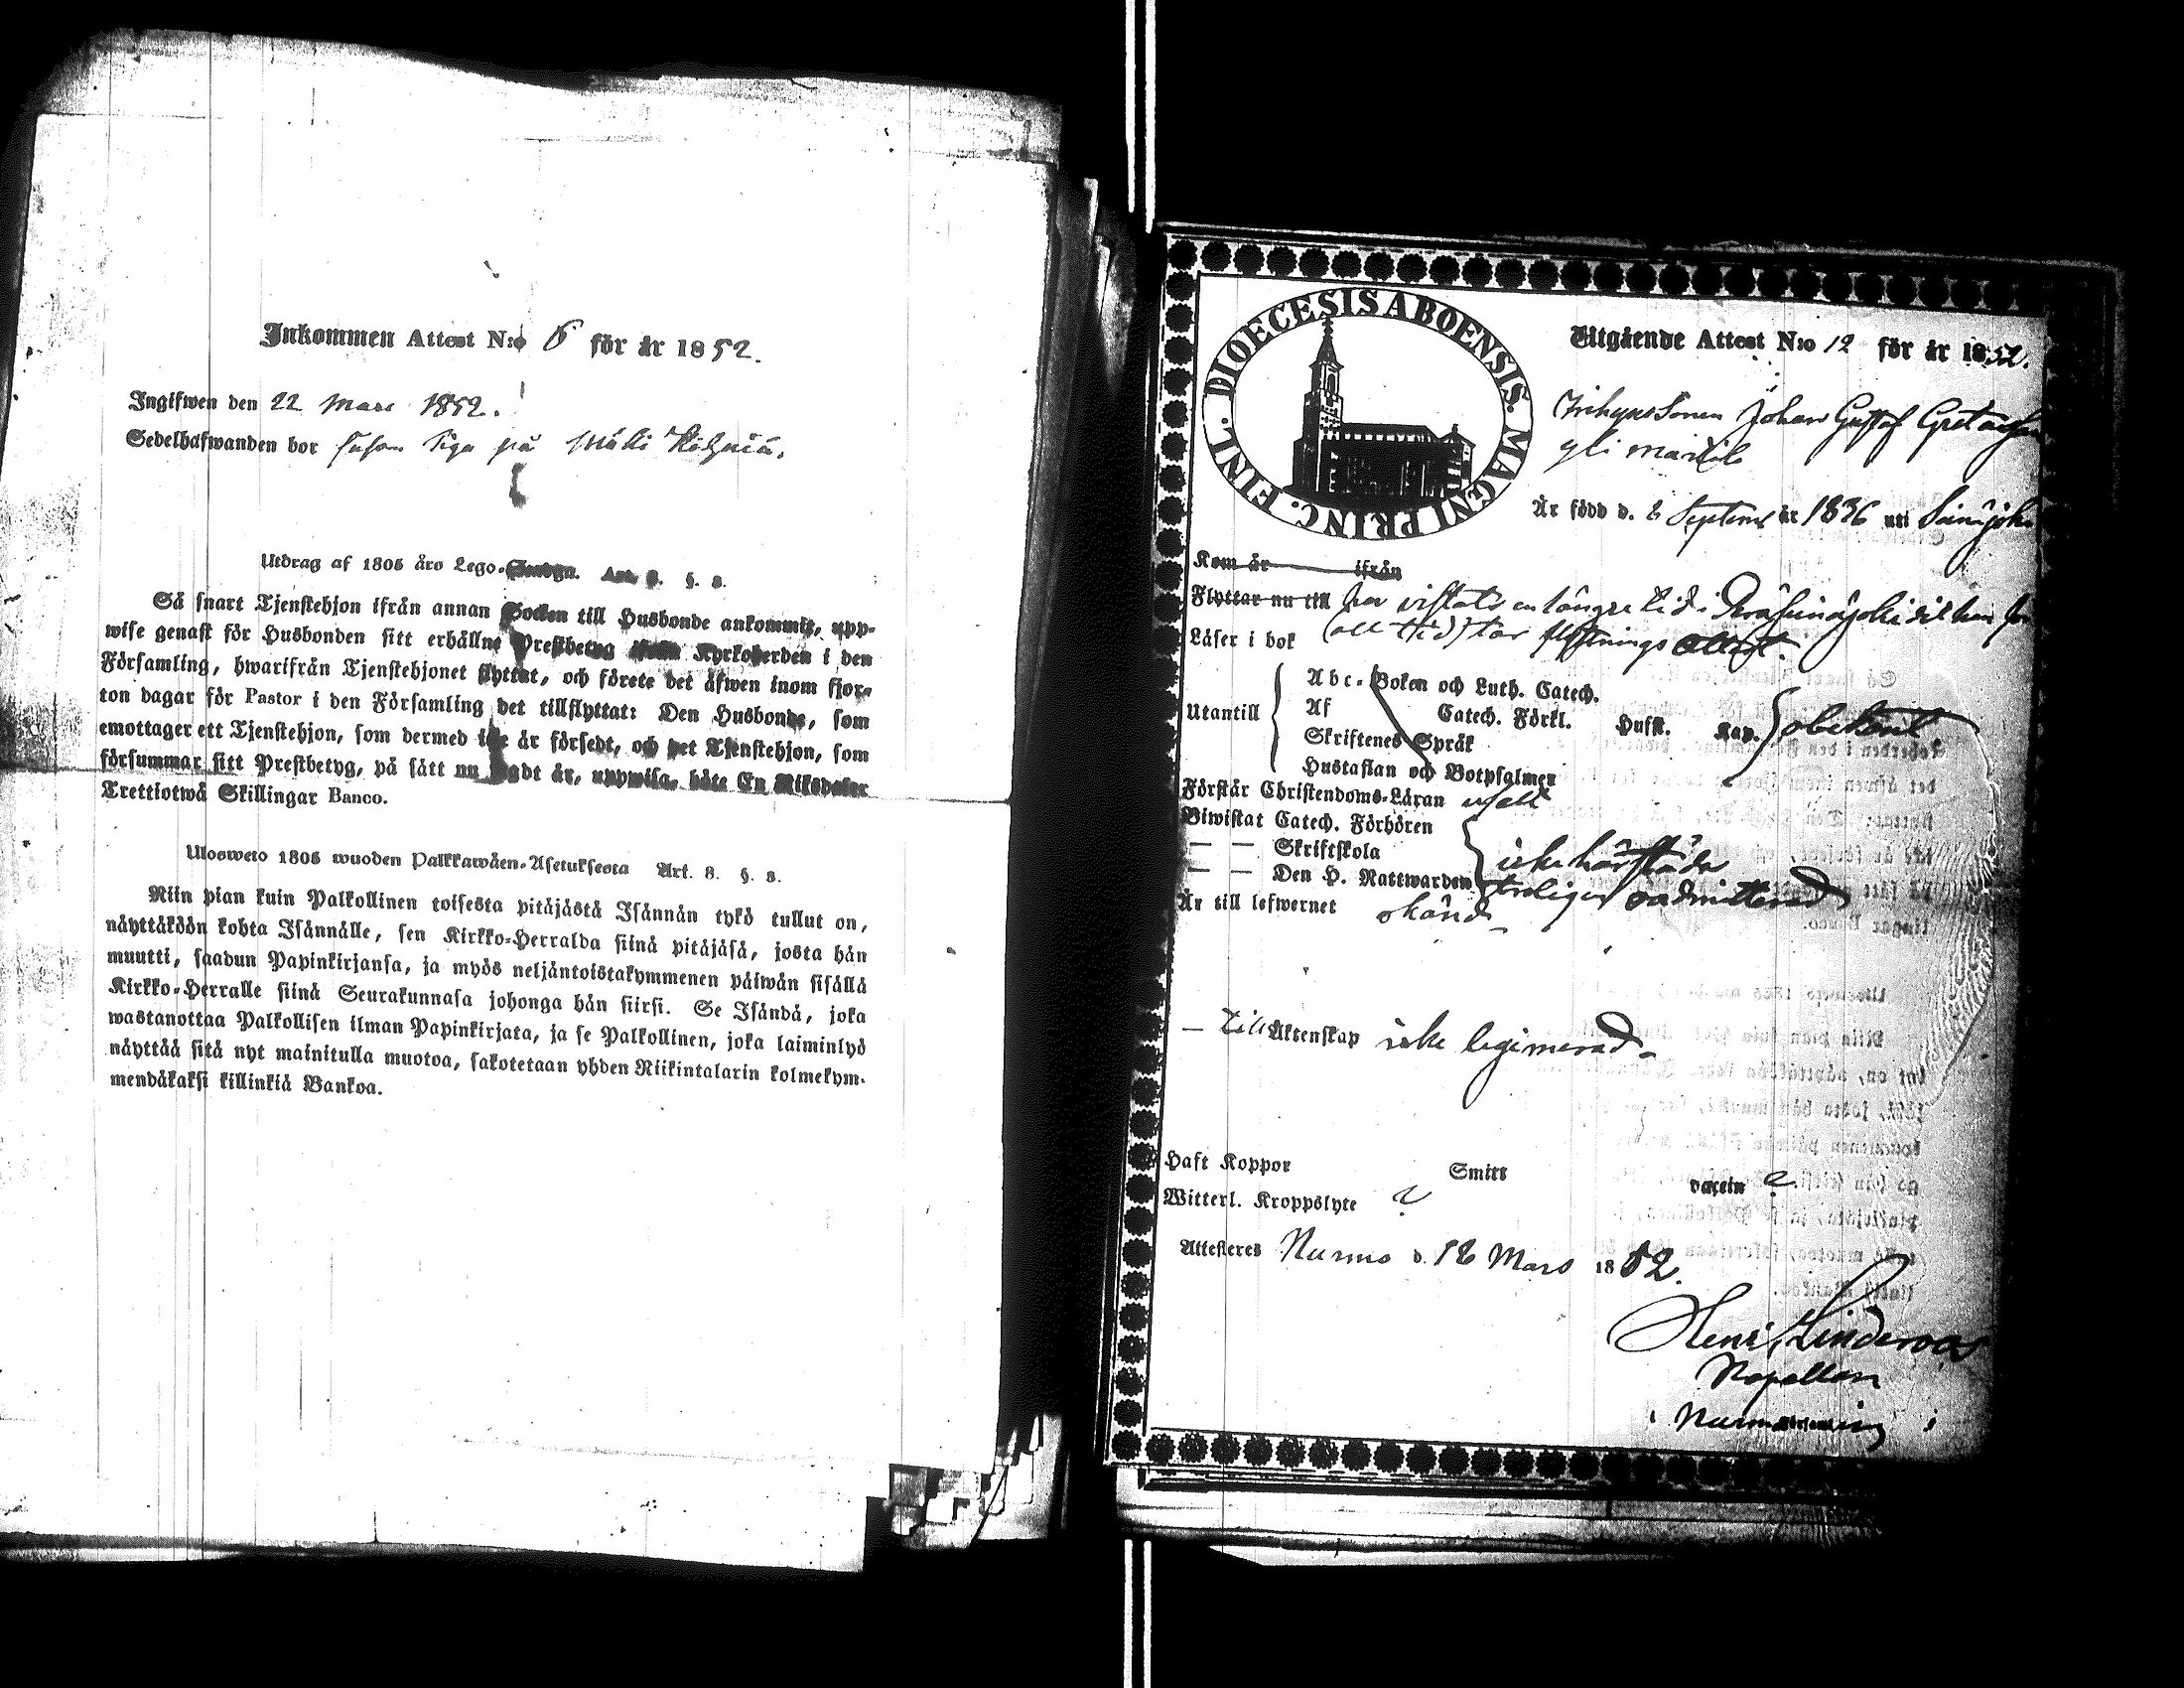 Inkommen Attest N:o 6 för år 1852.
Ingifwen den 22 Mars 1852.
Sedelhafwanden bor såsom Piga på Mäki
Utdrag af 1805 års Lego- Art. 8. §. 8.
Så snart Tjenstehjon ifrån annan Socken till Husbonde ankommit, upp-
wise genast för Husbonden sitt erhållne Prestbetyg Kyrkoherden i den
Församling, hwarifrån Tjenstehjonet flyttat, och förete det äfwen inom fjor-
ton dagar för Pastor i den Församling det tillflyttat: Den Husbonde, som
emottager ett Tjenstehjon, som dermed icke är försedt, och det Tjenstehjon, som
försummar sitt Prestbetyg, på sätt nu sagdt är, uppwisa, böte En Riksdaler
Trettiotwå Skillingar Banco.
Ulosweto 1805 wuoden Palkkawäen-Asetuksesta Art. 8. §. 8.
Niin pian kuin Palkollinen toisesta pitäjästä Isännän tykö tullut on,
näyttäköön kohta Isännälle, sen Kirkko-Herralda siinä pitäjäsä, josta hän
muutti, saadun Papinkirjansa, ja myös neljäntoistakymmenen päiwän sisällä
Kirkko-Herralle siinä Seurakunnasa johonga hän siirsi. Se Isändä, joka
wastanottaa Palkollisen ilman Papinkirjata, ja se Palkollinen, joka laiminlyö
näyttää sitä nyt mainitulla muotoa, sakotetaan yhden Riikintalarin kolmekym-
mendäkaksi killinkiä Bankoa.
DIOECESIS ABOENSIS. MAGNI PRINC. FINL.
Utgående Attest N:o 12 för år 1852.
Inhysessonen Johan Gustaf
yli
Är född d. 8 September år 1836 uti
Kom år ifrån
Flyttar nu till har vistats en längre tid i
Läser i bok tar flyttnings attest.
Utantill
Abc-Boken och Luth. Catech.
Af Catech. Förkl. Hufst. Kap. obekant
Skriftenes Språk
Hustaflan och Botpsalmer
Förstår Christendoms-Läran
Biwistat Catech. Förhören
— — Skriftskola icke härstädes
— — Den H. Nattwarden troligen oadmitterad
Är till lefwernet okänd
— till Äktenskap icke legimerad
Haft Koppor Smitt vaccin ?
Witterl. Kroppslyte ?
Attesteras Nurmo d. 18 Mars 1852.
Henr. Linderoos
Kapellan
i Nurmo